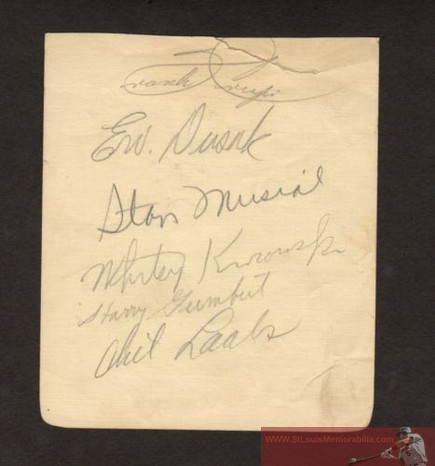 Frank Crespi
Erv. Dusak
Stan Musial
Whitey Kurowski
Harry Gumbert
Chet Laabs
www.StLouisMemorabilia.com